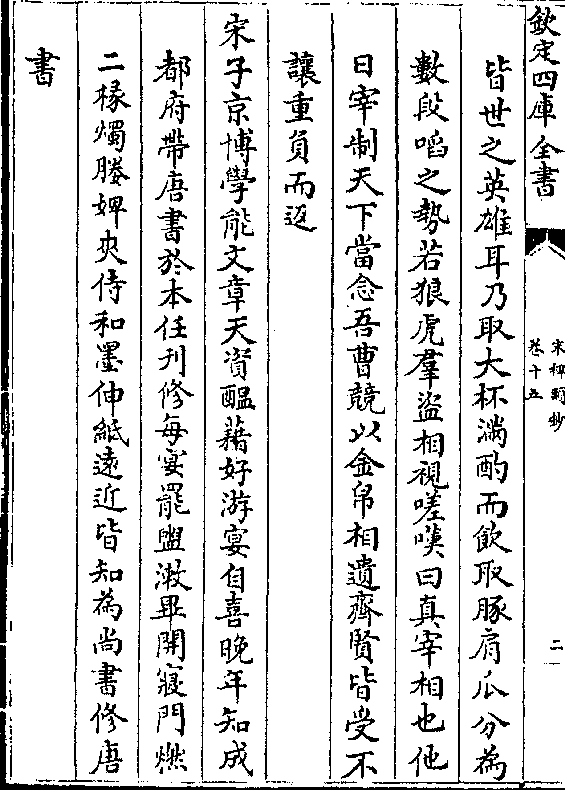 欽定四庫全書
宋稗類鈔
卷十五
二
皆世之英雄耳乃取大杯滿酌而飲取豚肩瓜分為
數段啗之勢若狼虎羣盜相視嗟嘆曰真宰相也他
日宰制天下當念吾曹競以金帛相遺齊賢皆受不
讓重負而返
宋子京博學能文章天資醞藉好游宴自喜晚年知成
都府帶唐書於本任刋修每宴罷盥漱畢開寢門燃
二椽燭媵婢夾侍和墨伸紙遠近皆知為尚書修唐
書